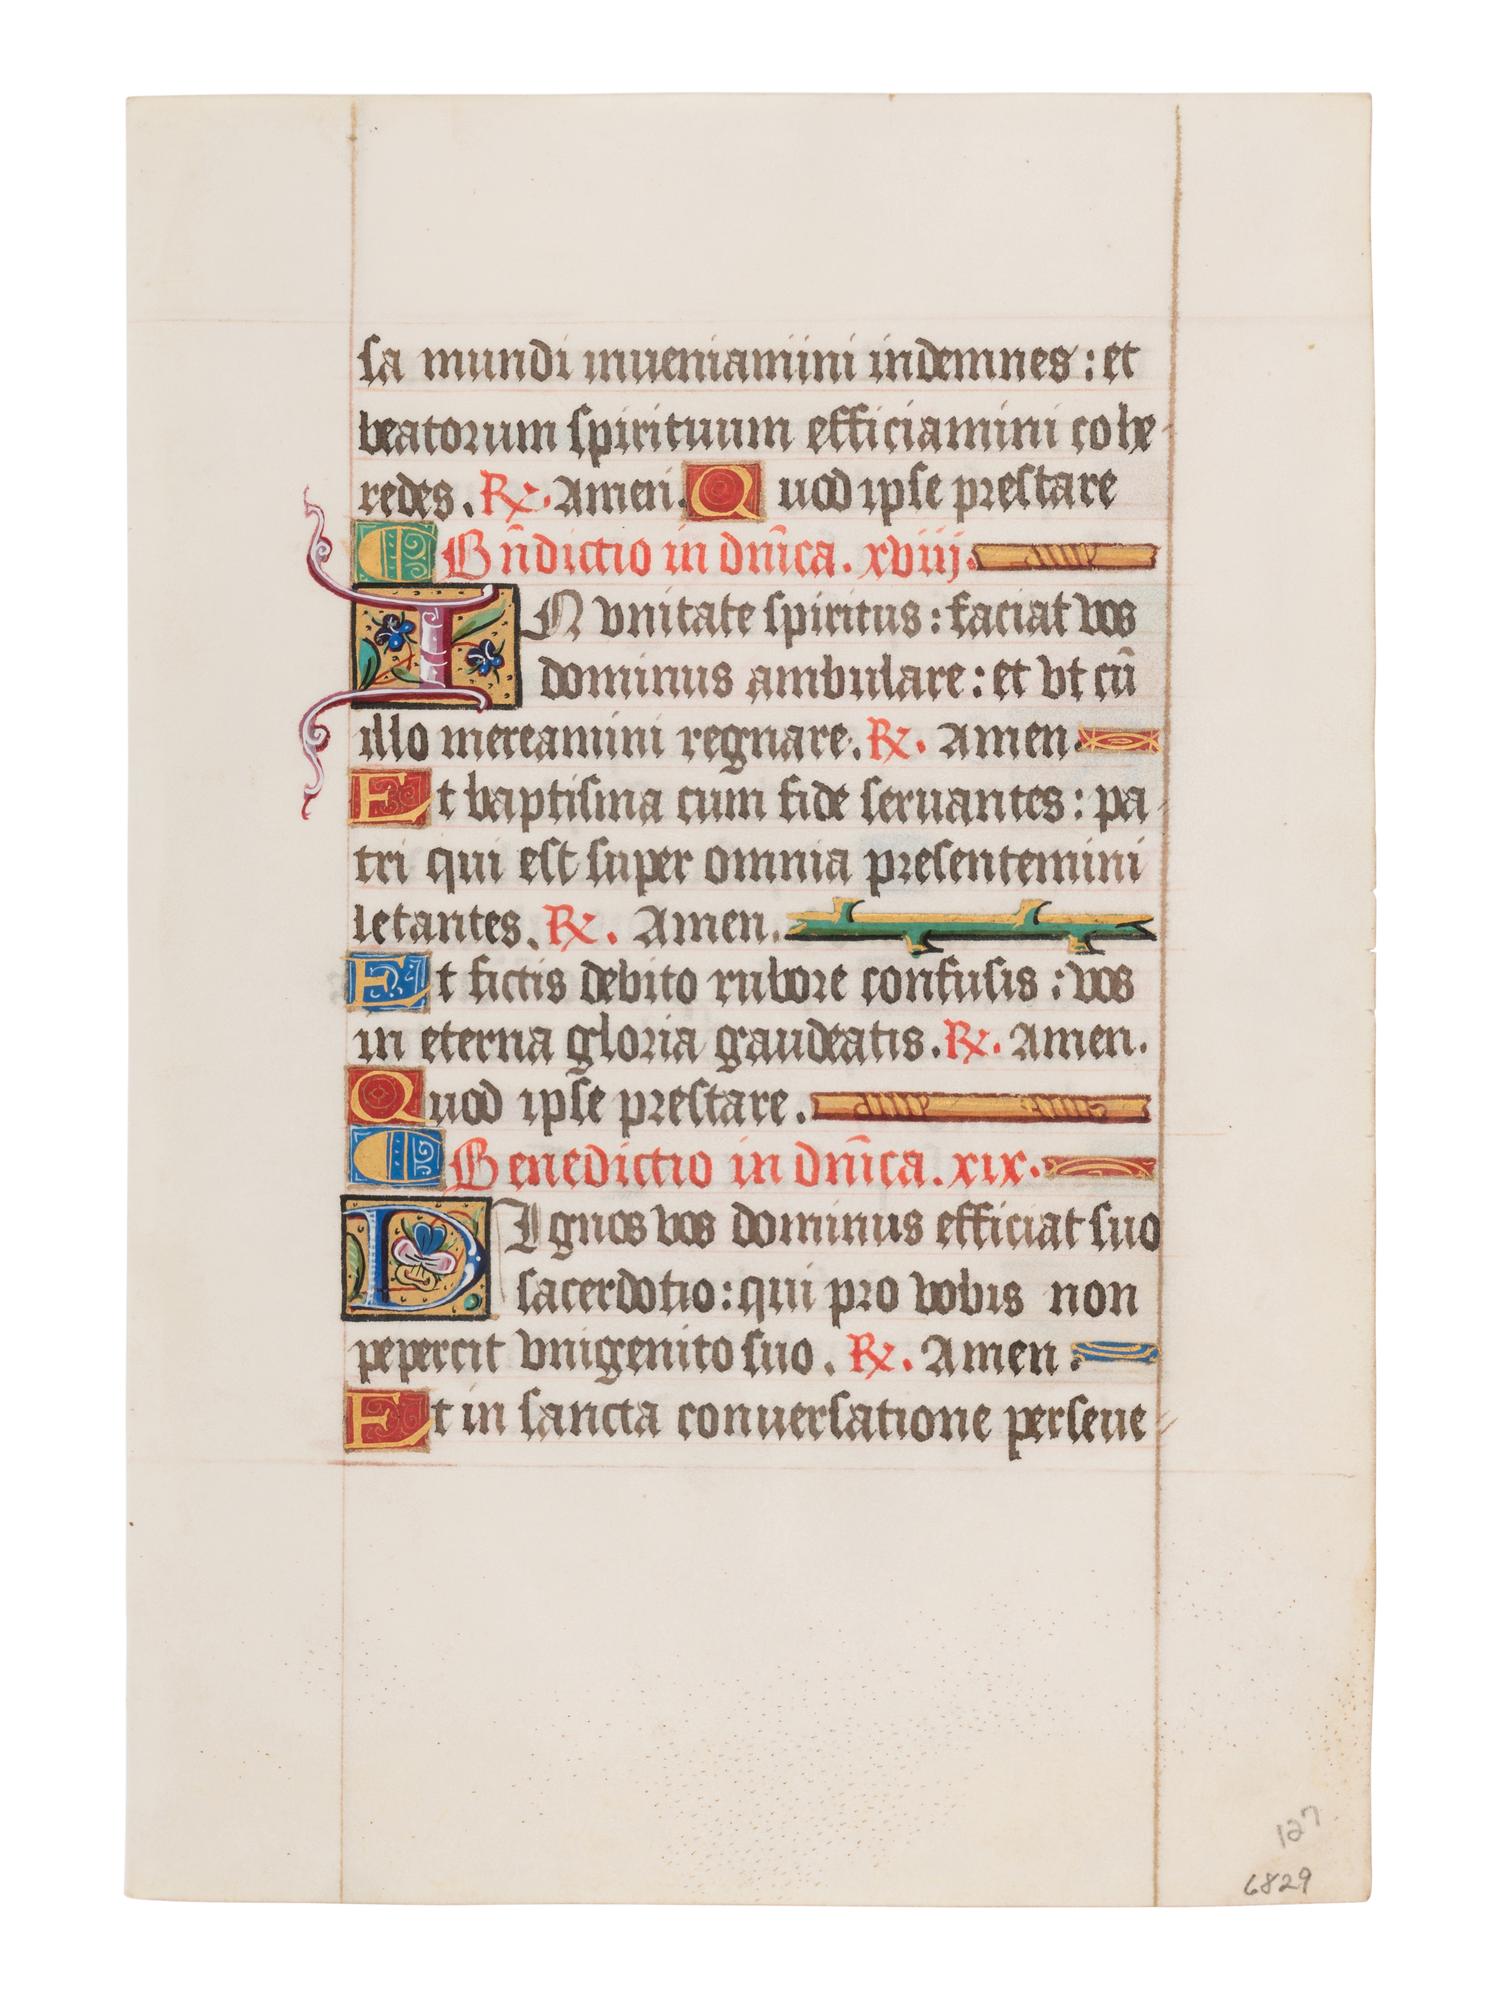 sa mundi inueniamini indemnes : et
beatorum spirituum efficiamini cohe
redes. R. Amen. Quod ipse prestare
Bn̄dictio in dn̄ica. xviij.
IN vnitate spiritus : faciat vos
dominus ambulare : et vt cū
illo mereamini regnare. R. Amen.
Et baptisma cum fide seruantes : pa
tri qui est super omnia presentemini
letantes. R. Amen.
Et fictis debito rubore confusis : vos
in eterna gloria gaudeatis. R. Amen.
Quod ipse prestare.
Benedictio in dn̄ica. xix.
DIgnos vos dominus efficiat suo
sacerdotio : qui pro vobis non
pepercit vnigenito suo. R. Amen.
Et in sancta conuersatione perseue
127
6829